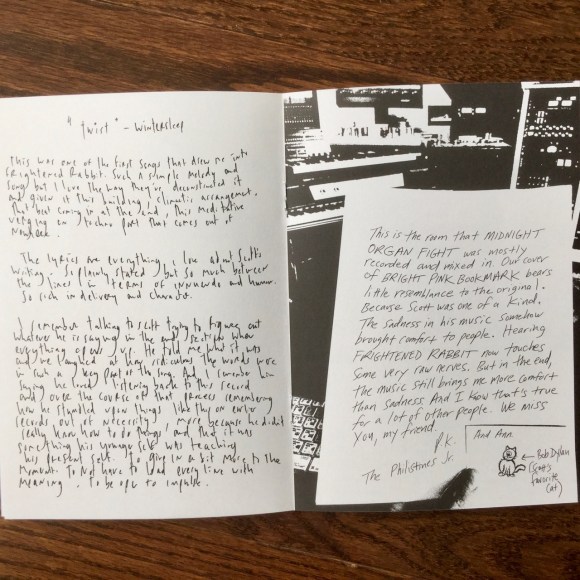 "Twist" - Wintersleep
This was one of the first songs that drew me into
Frightened Rabbit. Such a simple melody and
song but I love the way they've deconstructed it
and given it this building, climactic arrangement.
That beat coming in at the end, this meditative
verging on techno part that comes out of
Nowhere.
The lyrics are everything i love about Scott's
writing. So plainly stated, but so much between
the lines in terms of innuendo and humor.
So rich in delivery and character.
I remember talking to Scott trying to figure out
whatever he is saying in the end section when
everything opens up. He told me what it was
and we laughed at how ridiculous the words were
in such a key part of the song. And I remember him
saying he loved listening back to this record
and over the course of that process remembering
how he stumbled upon things like this on early
records, out of necessity, more because he didn't
really know how to do things, and that it was
something his younger self was teaching
his present self. To give in a bit more to the
moment. To not have to load every line with
meaning. To be open to impulse.
This is the room that MIDNIGHT
ORGAN FIGHT was mostly
recorded and mixed in. Our cover
of BRIGHT PINK BOOKMARK bears
little resemblance to the original.
Because Scott was one of a kind.
The sadness in his music somehow
brought comfort to people. Hearing
FRIGHTENED RABBIT now touches
some very raw nerves. But in the end,
the music still brings me more comfort
than sadness And I know that's true
for a lot of other people. We miss
you, my friend.
P.K.
The Philistines Jr.
And Ann.
← Bob Dylan
(Scott's
favorite
cat)